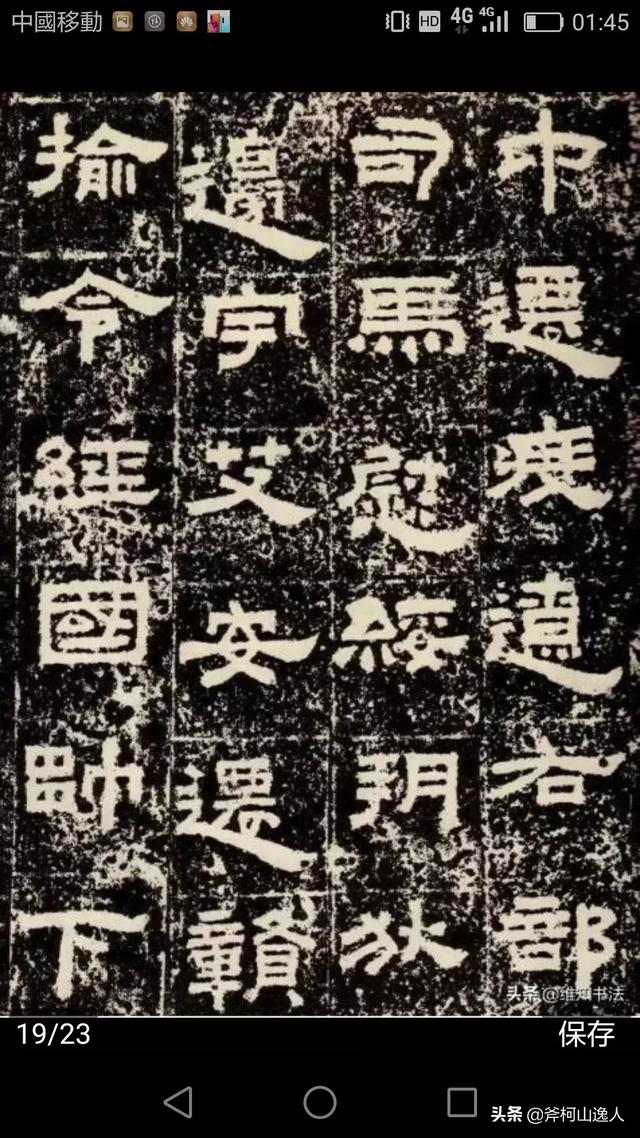 中國移動 HD 4G 4G 01:45
中遷度遼右部
司馬慰綏朔狄
邊宇艾安遷贛
揄令經國帥下
头条 @维知书法
19/23 保存
头条 @斧柯山逸人